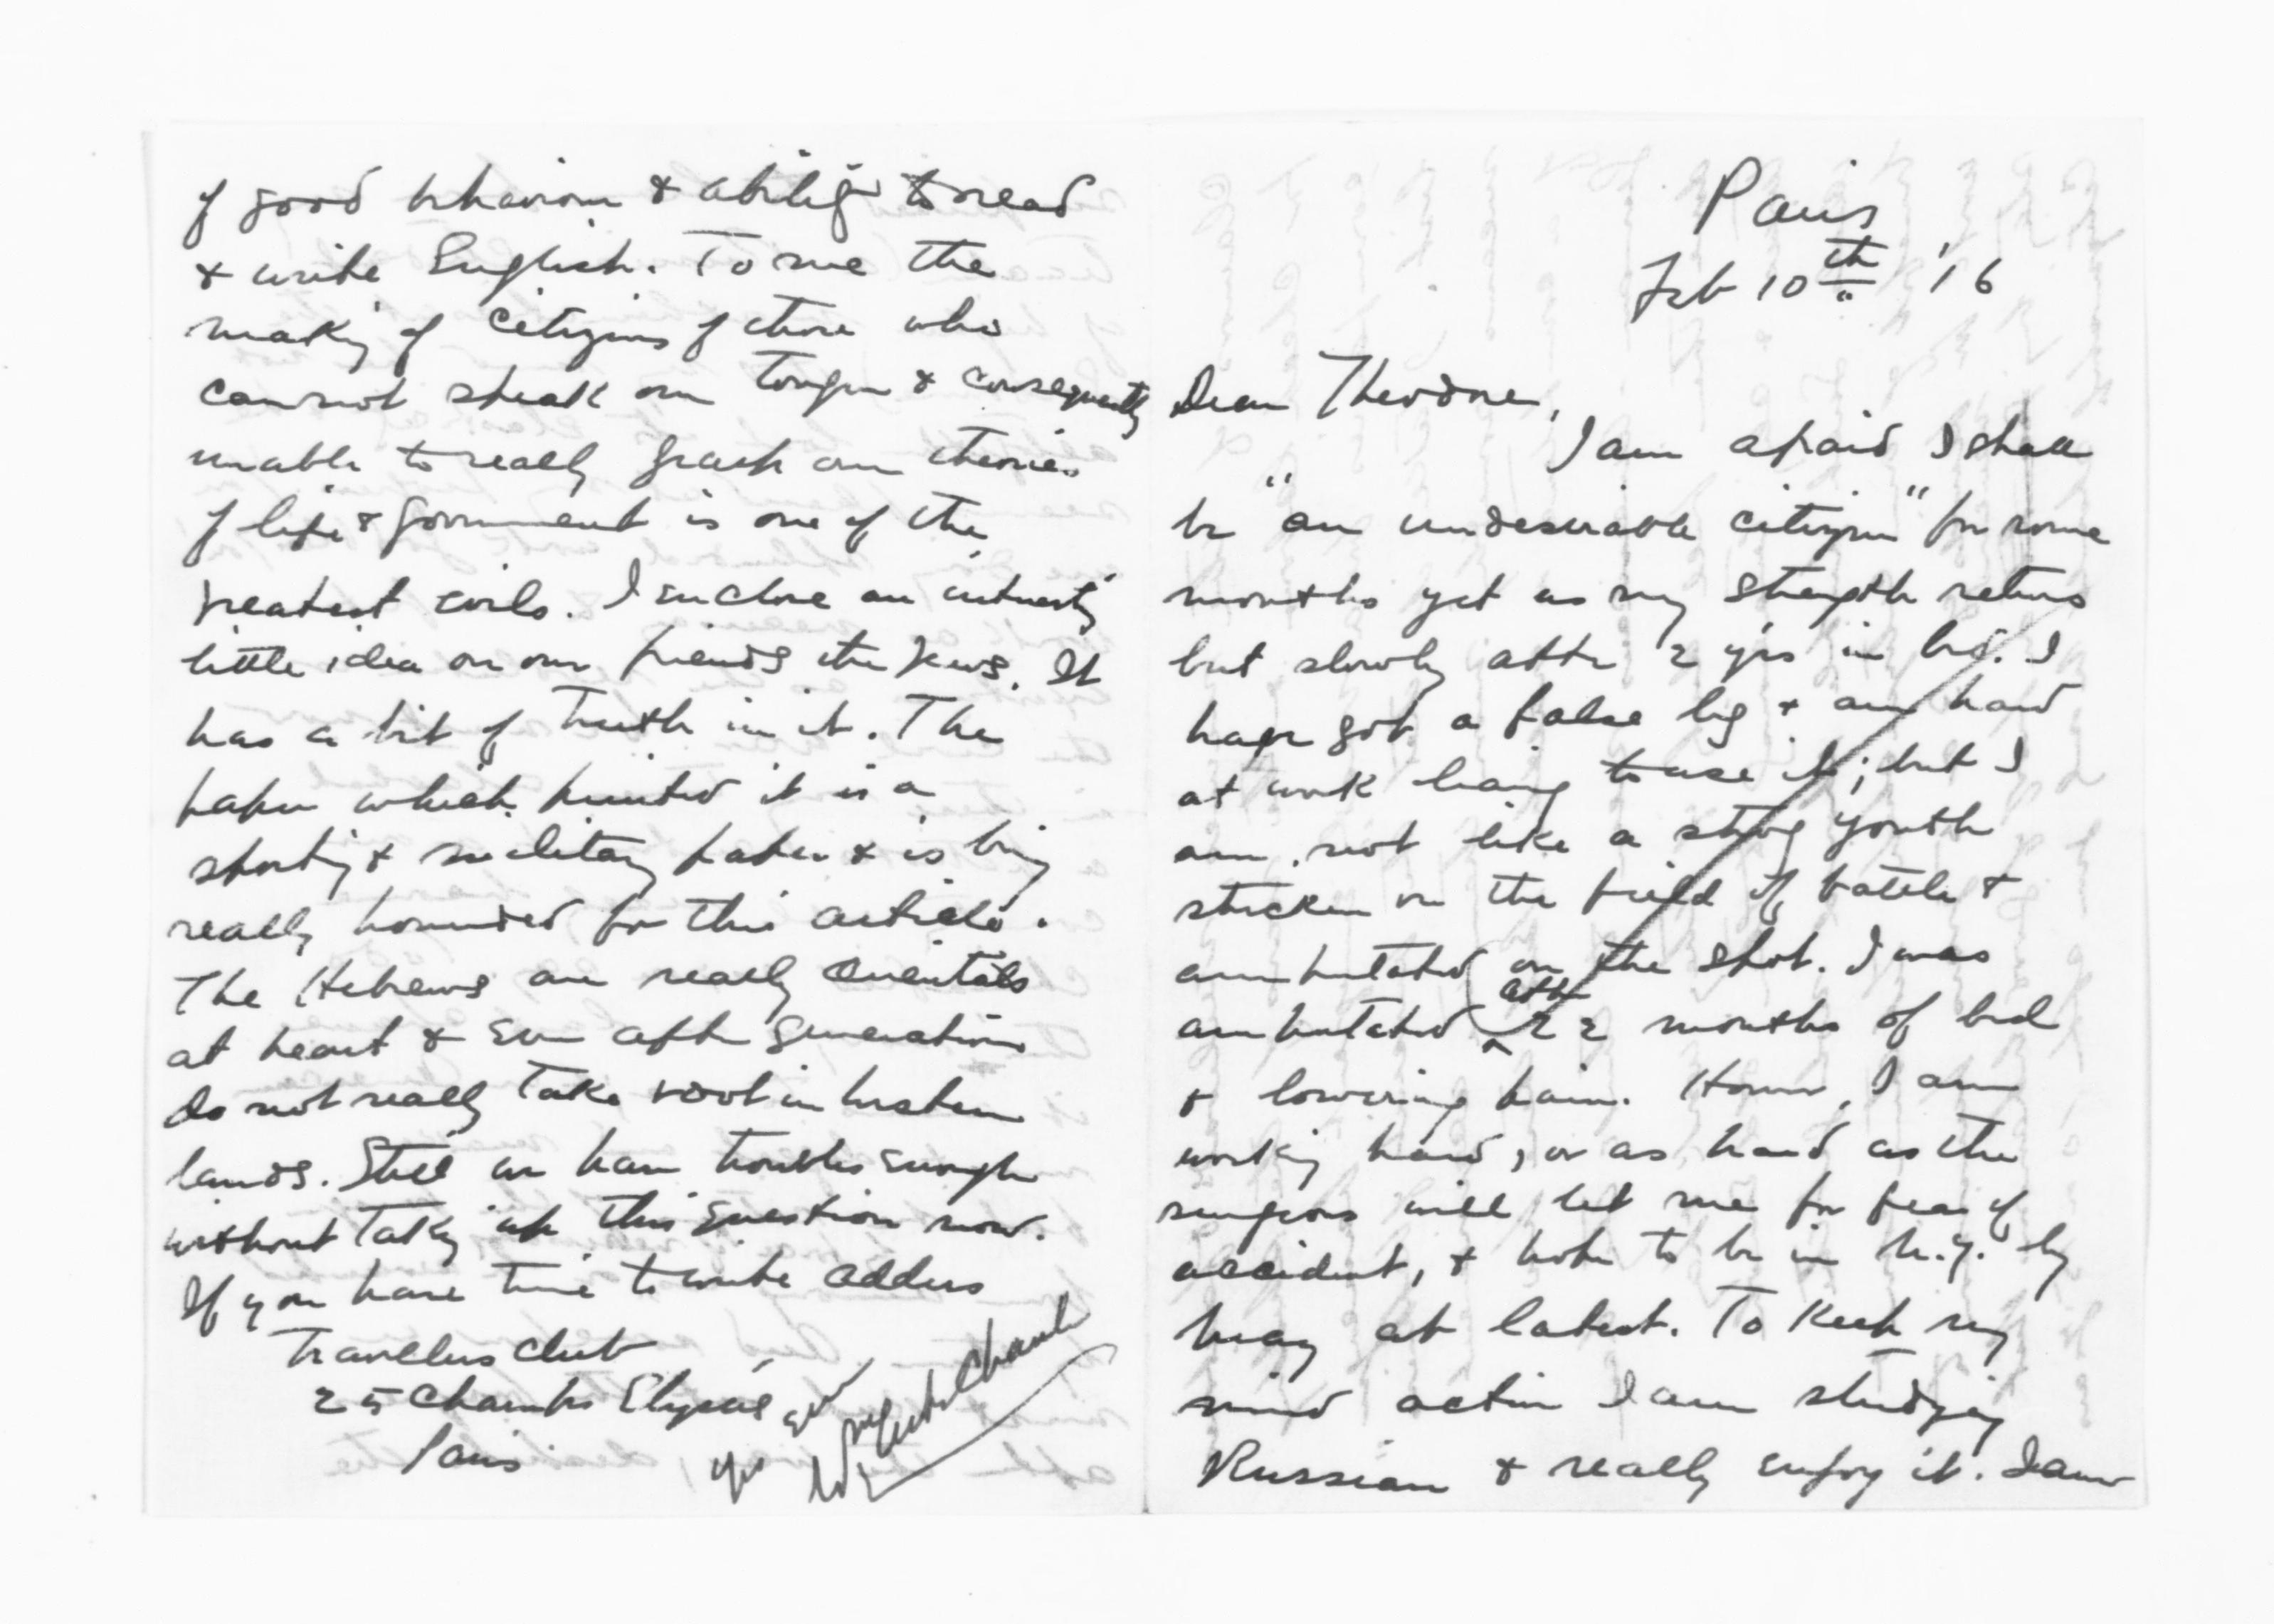 Paris
Feb 10th '16
Dear Theodore,
I am afraid I shall
be "an undesirable citizen" for some
months yet as my strength returns
but slowly after 2 yrs in bed. I
have got a false leg & am hard
at work learning to use it; but I
am not like a strong youth
stricken on the field of battle &
amputated on the spot. I was
amputated after 22 months of bed
& lowering pain. However, I am
working hard, or as hard as the
surgeons will let me for fear of
accident, & hope to be in N.Y. by
May at latest. To keep my
mind active I am studying
Russian & really enjoy it. I am
of good behaviour & ability to read
& write English. To me the
making of citizens of those who
cannot speak our tongue & consequently
unable to really grasp our theories
of life & government is one of the
greatest evils. I enclose an interesting
little idea on our friends the Jews. It
has a bit of truth in it. The
paper which printed it is a
sporting & military paper & is being
really hounded for this article.
The Hebrews are really Orientals
at heart & even after generations
do not really take root in western
lands. Still we have troubles enough
without taking up this question now.
If you have time to write address
Travellers Club
25 Champs Elysees
Paris
yrs ever
Wm Astor Chanler